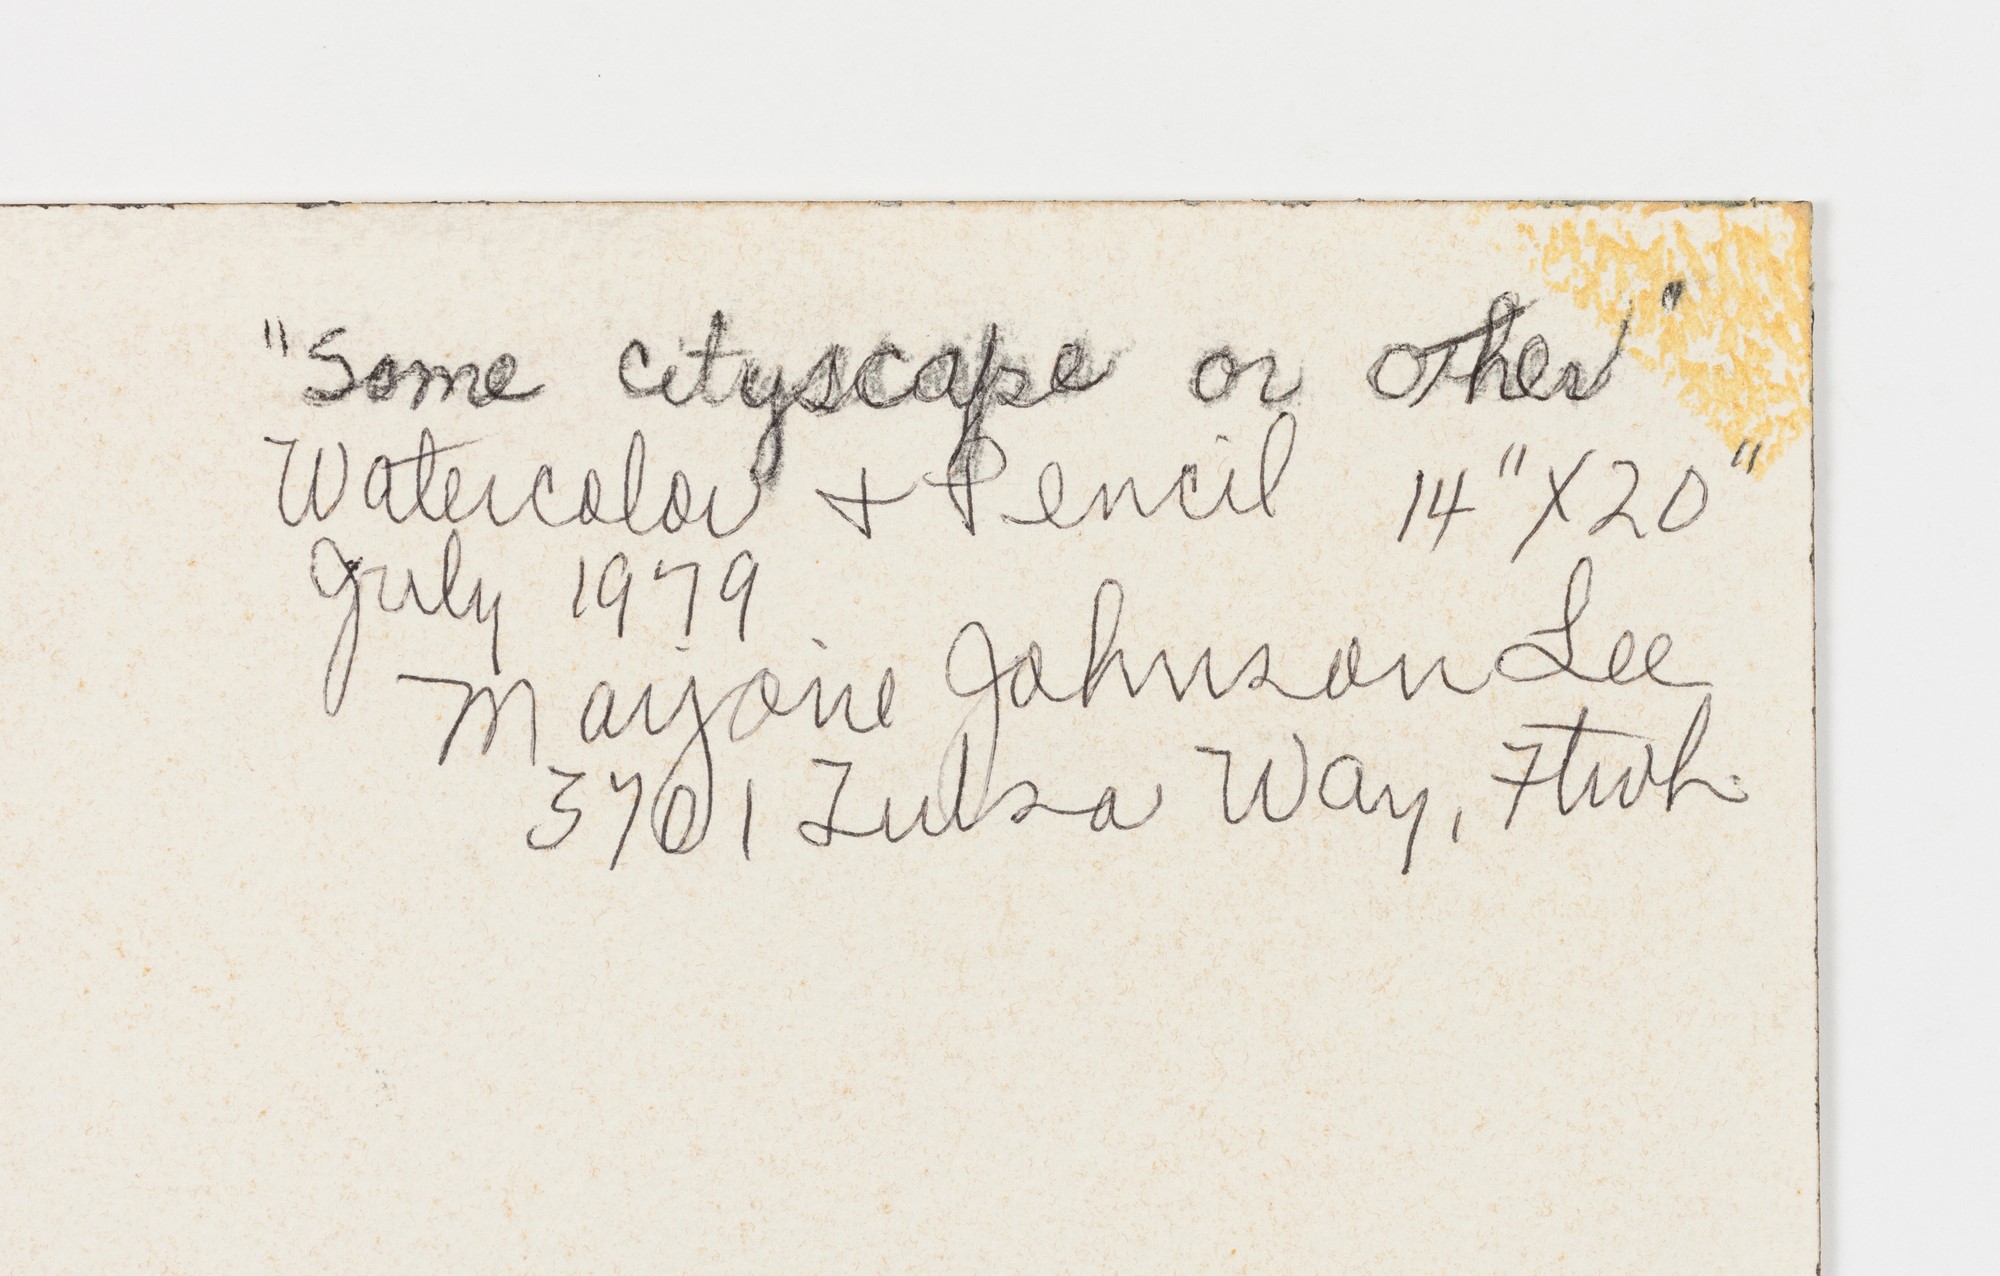 "Some cityscape or other"
Watercolor + Pencil 14" X 20"
July 1979
Marjorie Johnson Lee
3701 Tulsa Way, Ftwh.